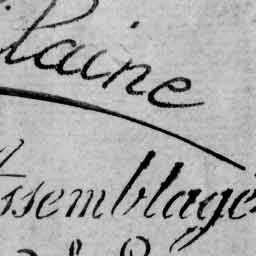 laine
Assemblage